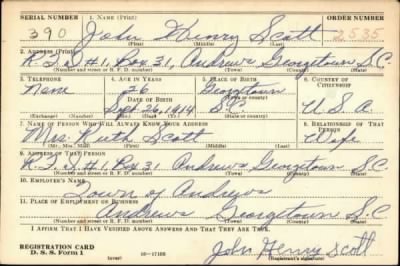 SERIAL NUMBER 1. NAME (Print) ORDER NUMBER
390 John Henry Scott 2535
(First) (Middle) (Last)
2. ADDRESS (Print)
R.F.D #1, Box 31, Andrews Georgetown S.C.
(Number and street or R. F. D. number) (Town) (County) (State)
3. TELEPHONE 4. AGE IN YEARS 5. PLACE OF BIRTH 6. COUNTRY OF CITIZENSHIP
None 26 Georgetown
Sept 26, 1914 S.C. U.S.A.
7. NAME OF PERSON WHO WILL ALWAYS KNOW YOUR ADDRESS 8. RELATIONSHIP OF THAT PERSON
Mrs. Ruth Scott Wife
9. ADDRESS OF THAT PERSON
R.F.D #1 Box 31 Andrews Georgetown S.C
(Number and street or R. F. D. number) (Town) (County) (State)
10. EMPLOYER'S NAME
Town of Andrews
11. PLACE OF EMPLOYMENT OR BUSINESS
Andrews Georgetown S.C
(Number and street or R. F. D. number) (Town) (County) (State)
I AFFIRM THAT I HAVE VERIFIED ABOVE ANSWERS AND THAT THEY ARE TRUE.
REGISTRATION CARD
D. S. S. Form 1 (over) John Henry Scott
(Registrant's signature)